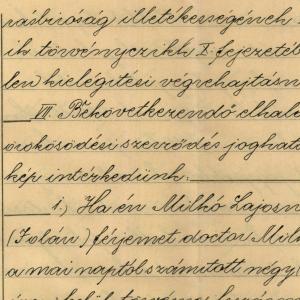 rásbiróság illetékességének
ik törvényczikk X. fejezeté
len kielégitési végrehajtásn
VII. Bekövetkezendő elhalá
öröksödési szerződés jogható
kép intézkedünk.
1.) Ha én Milkó Lajosn
(Izolán) férjemet doctor Milk
a mai naptól számitott négy